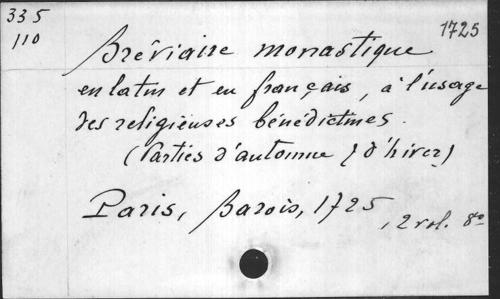 335
110
1725
Bréviaire monastique
en latin et en français, à l'usage
des religieuses bénédictines.
(Parties d'automne & d'hiver)
Paris, Barois, 1725
, 2 vol. 8o